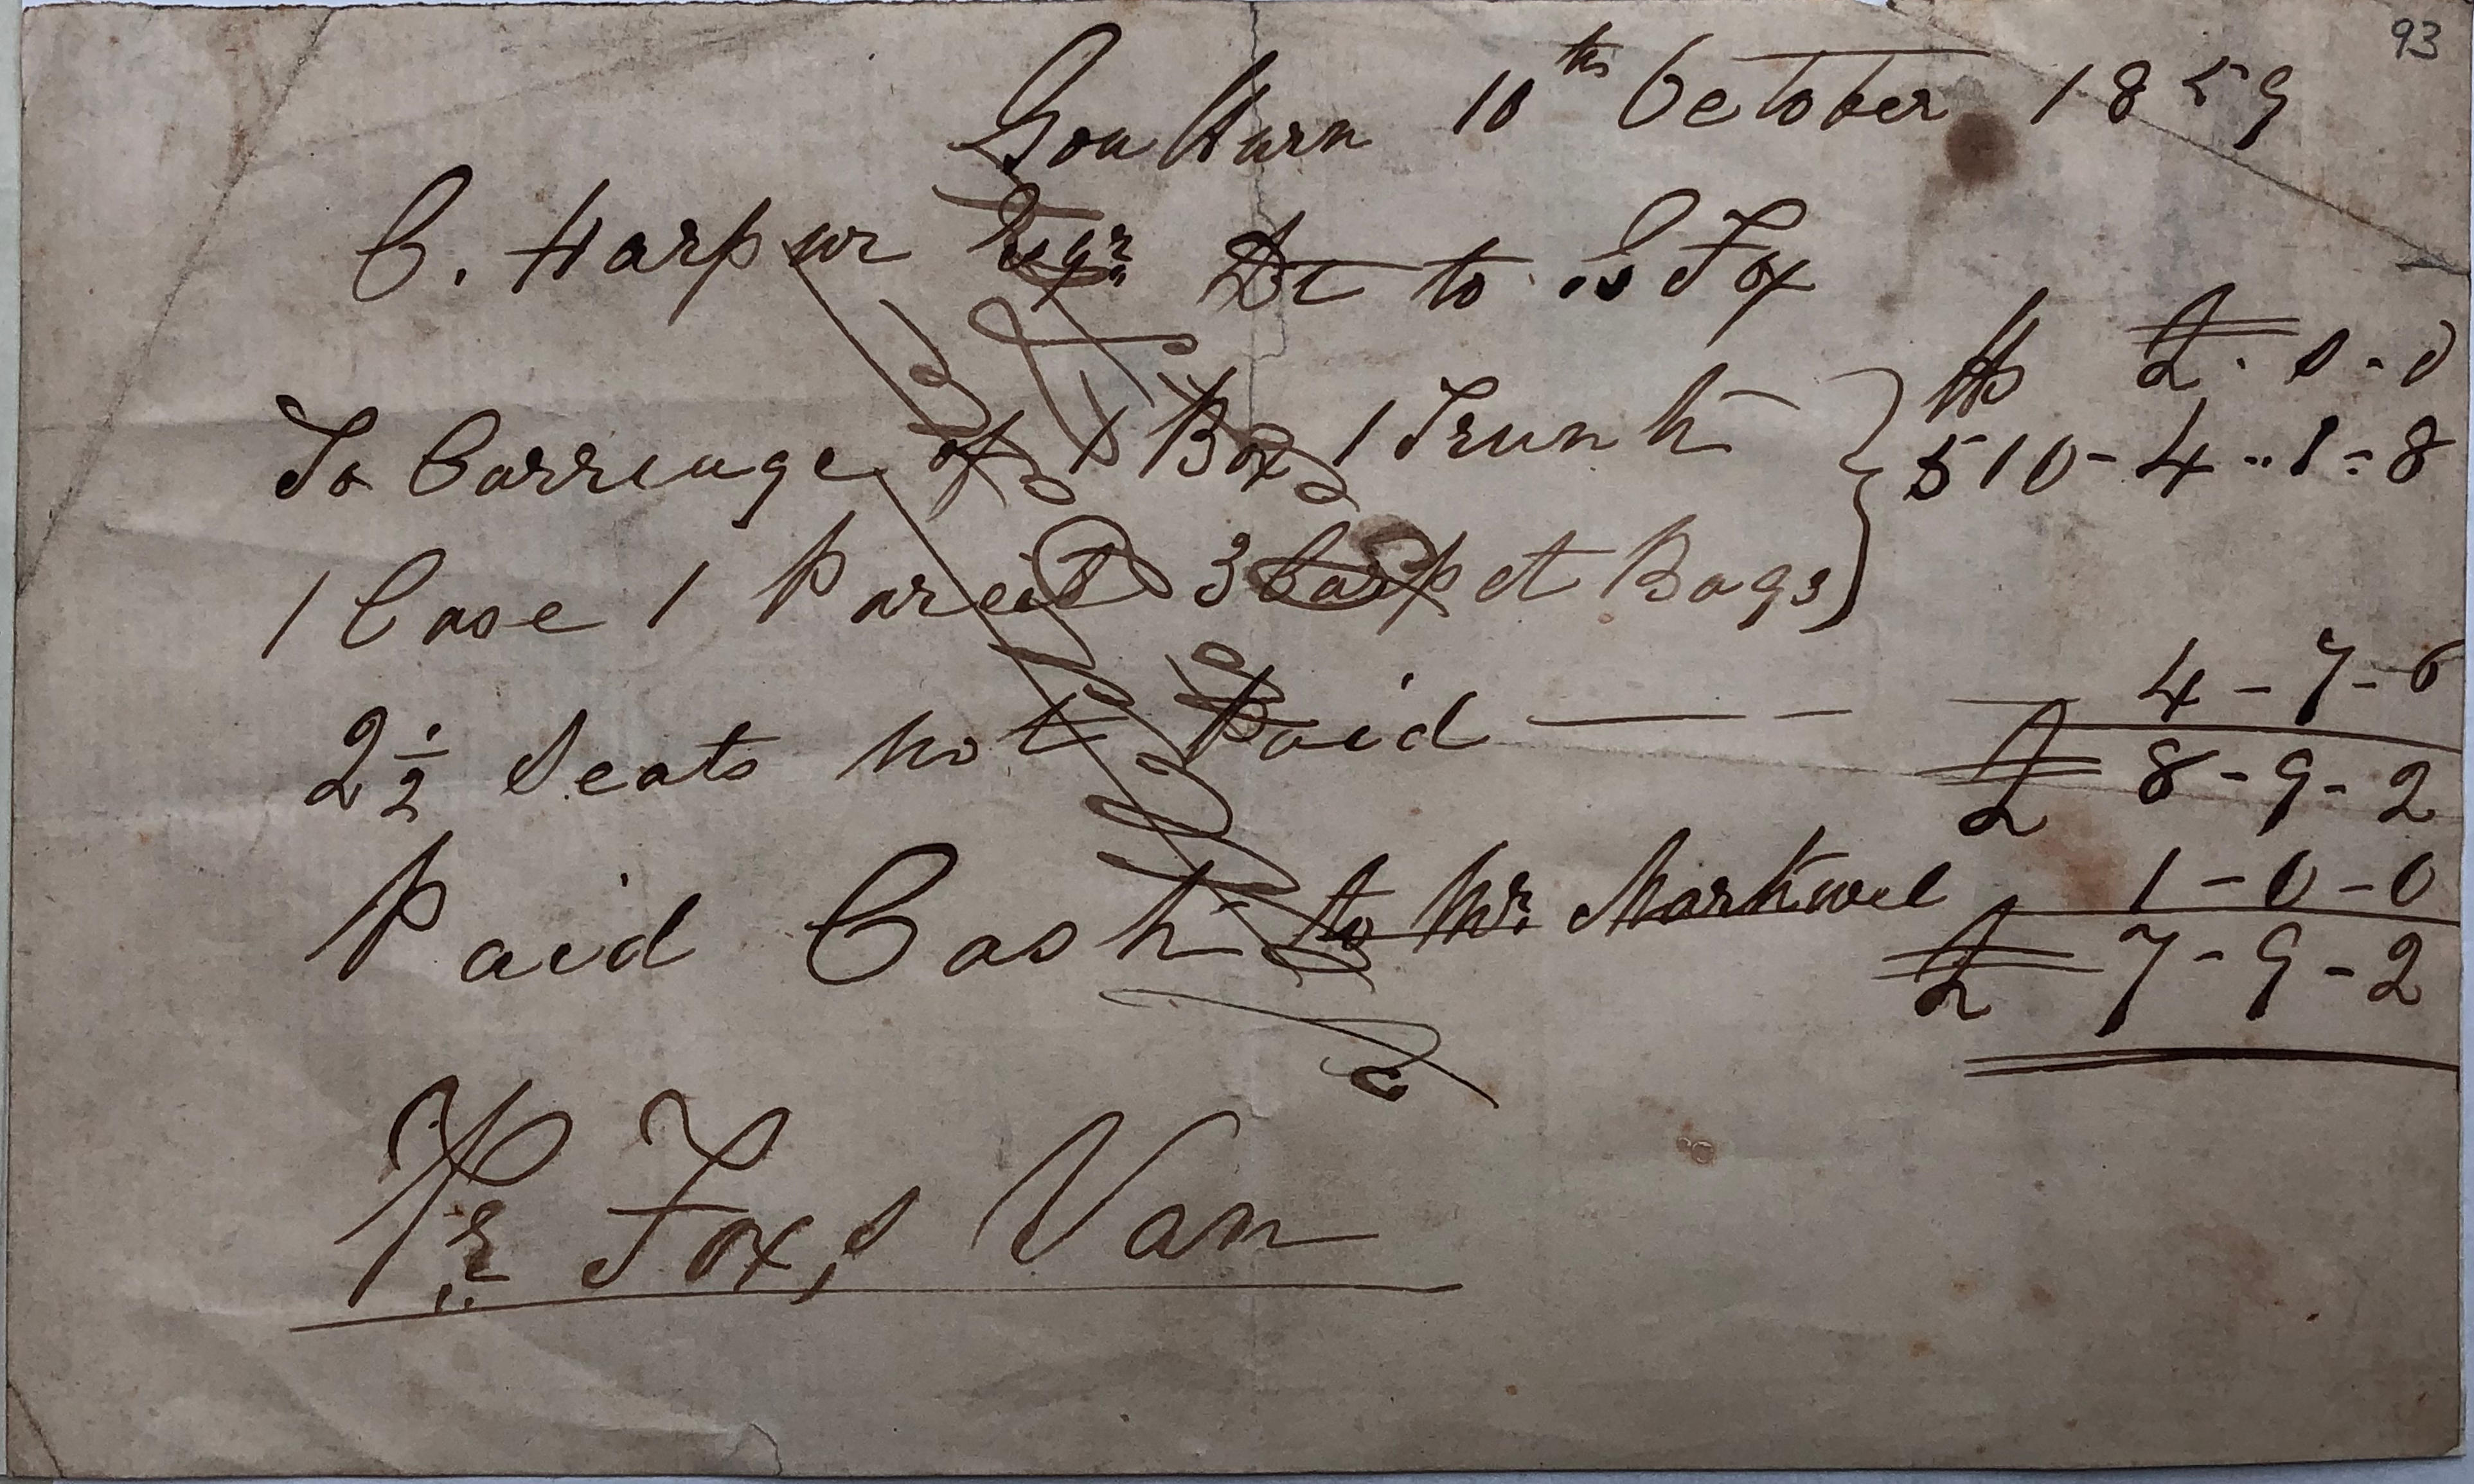 93
Goulburn 10th October 1859
C. Harpur Esqr. Dr to Fox
lbs £ - s - d
To Carriage of 1 Box 1 Trunk
510 - 4 - 1 - 8
1 Case 1 Parcel 3 Carpet Bags
2 1/2 Seats not Paid — — — 4 - 7 - 6
£ 8 - 9 - 2
Paid Cash to Mr. Markwel 1 - 0 - 0
£ 7 - 9 - 2
Pr Fox,s Van